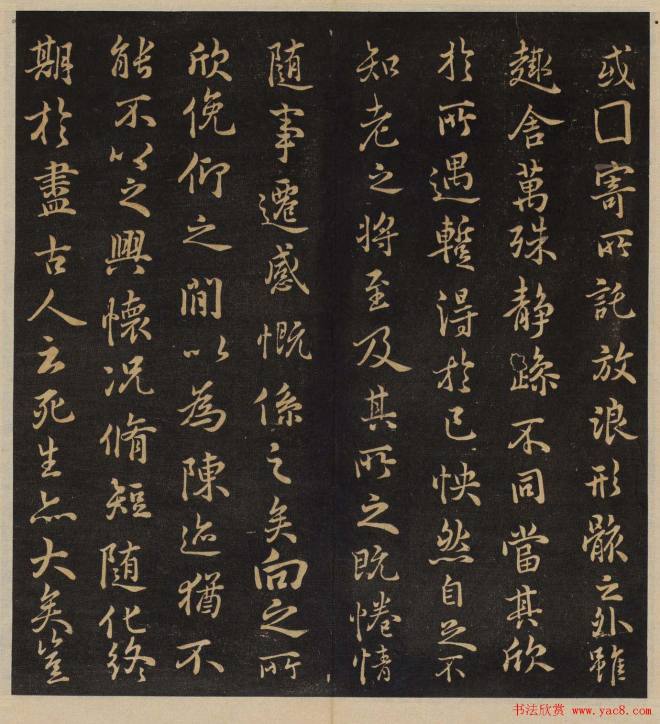 或囗寄所託放浪形骸之外雖
趣舍萬殊静躁不同當其欣
於所遇蹔得於己怏然自足不
知老之將至及其所之既惓情
隨事遷感慨係之矣向之所
欣俛仰之間以為陳迹猶不
能不以之興懷况脩短隨化終
期於盡古人云死生亦大矣豈
书法欣赏 www.yac8.com